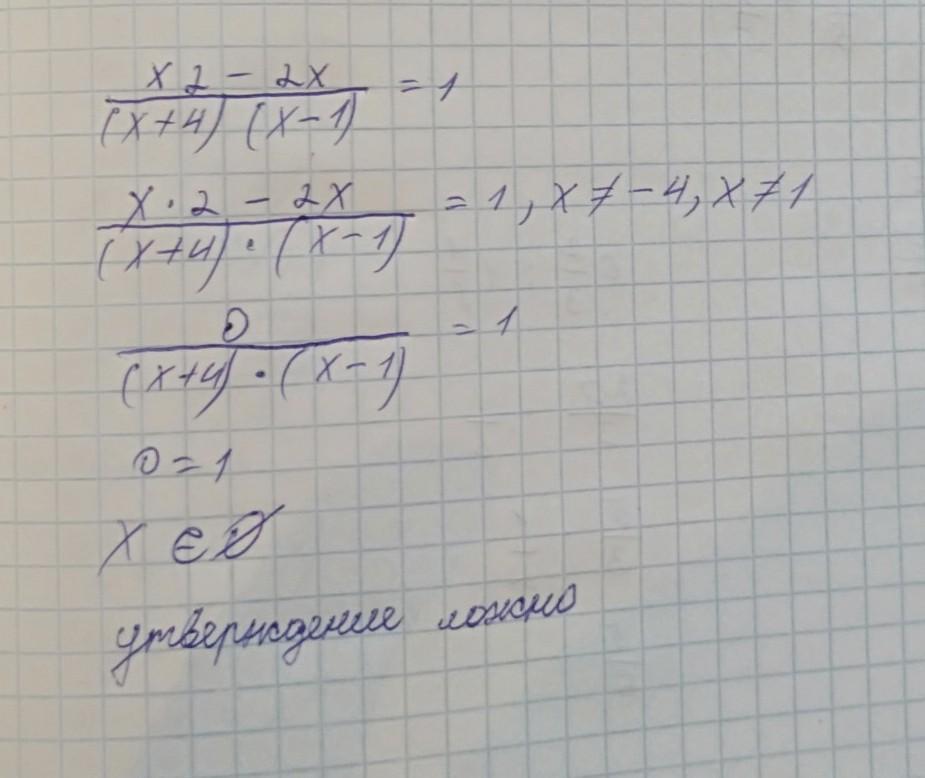 x 2 - 2x
= 1
(x+4) (x-1)
x·2 - 2x
= 1, x ≠ -4, x ≠ 1
(x+4)·(x-1)
0
= 1
(x+4)·(x-1)
0 = 1
x ∈ Ø
утверждение ложно